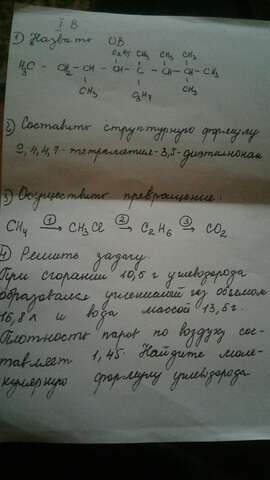 I В
1) Назвать ОВ
C₂H₅ CH₃ CH₃ CH₃
H₃C - CH₂ - CH - CH - C - CH - CH - CH₃
CH₃ C₃H₇ CH₃
2) Составить структурную формулу
2,4,4,7-тетраметил-3,5-диэтилнонан
3) Осуществить превращение:
CH₄ →① CH₃Cl →② C₂H₆ →③ CO₂
4) Решить задачу.
При сгорании 10,5 г углеводорода
образовался углекислый газ объемом
16,8 л и вода массой 13,5 г.
Плотность паров по воздуху сос-
тавляет 1,45. Найдите моле-
кулярную формулу углеводорода